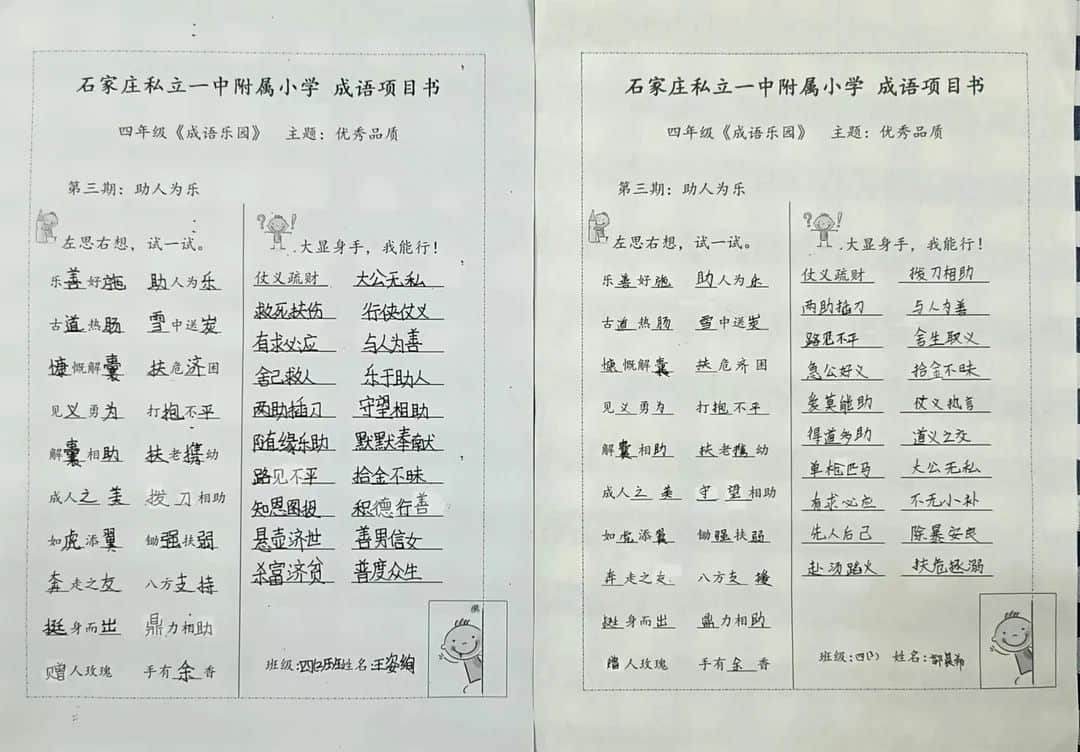 石家庄私立一中附属小学 成语项目书
四年级《成语乐园》 主题：优秀品质
第三期：助人为乐
左思右想，试一试。
乐善好施 助人为乐
古道热肠 雪中送炭
慷慨解囊 扶危济困
见义勇为 打抱不平
解囊相助 扶老携幼
成人之美 拨刀相助
如虎添翼 锄强扶弱
奔走之友 八方支持
挺身而出 鼎力相助
赠人玫瑰 手有余香
大显身手，我能行！
仗义疏财 大公无私
救死扶伤 行侠仗义
有求必应 与人为善
舍己救人 乐于助人
两助插刀 守望相助
随缘乐助 默默奉献
路见不平 拾金不昧
知恩图报 积德行善
悬壶济世 善男信女
杀富济贫 普度众生
班级：四 班 姓名：王姿绚
石家庄私立一中附属小学 成语项目书
四年级《成语乐园》 主题：优秀品质
第三期：助人为乐
左思右想，试一试。
乐善好施 助人为乐
古道热肠 雪中送炭
慷慨解囊 扶危济困
见义勇为 打抱不平
解囊相助 扶老携幼
成人之美 守望相助
如虎添翼 锄强扶弱
奔走之友 八方支援
挺身而出 鼎力相助
赠人玫瑰 手有余香
大显身手，我能行！
仗义疏财 拨刀相助
两助插刀 与人为善
路见不平 舍生取义
急公好义 拾金不昧
爱莫能助 仗义执言
得道多助 道义之交
单枪匹马 大公无私
有求必应 不无小补
先人后己 除暴安良
赴汤蹈火 扶危拯溺
班级：四 姓名：